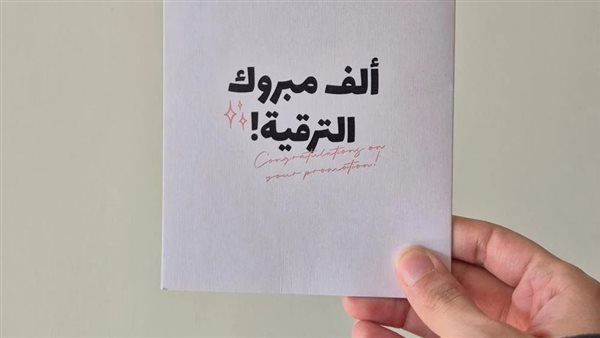 ألف مبروك
الترقية!
Congratulations on
your promotion!